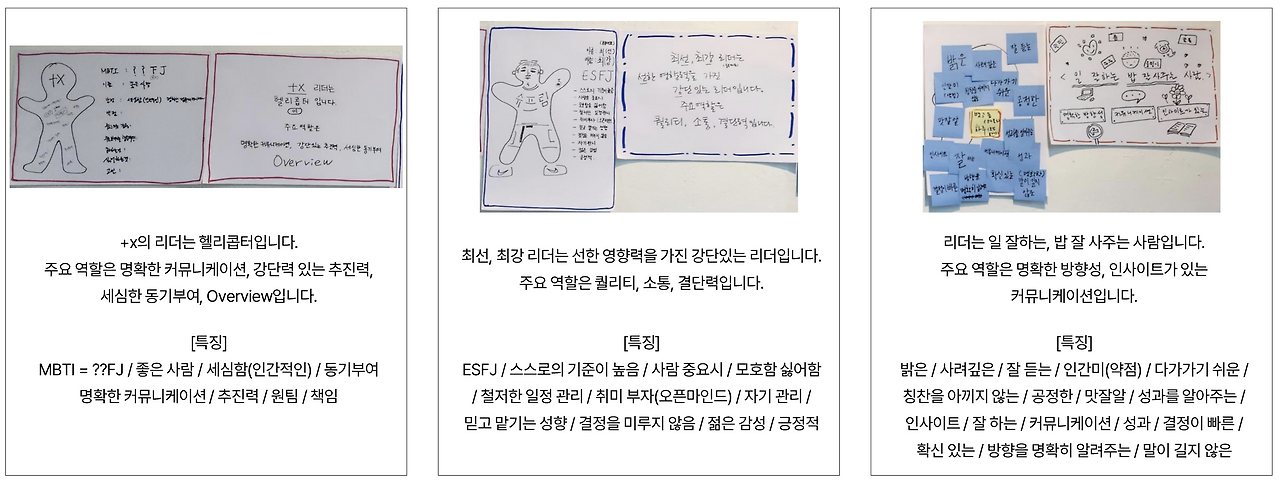 +x
MBTI : ? ? F J
+x 리더는
헬리콥터 입니다.
주요 역할은
명확한 커뮤니케이션, 강단있는 추진력, 세심한 동기부여
Overview
+x의 리더는 헬리콥터입니다.
주요 역할은 명확한 커뮤니케이션, 강단력 있는 추진력,
세심한 동기부여, Overview입니다.
[특징]
MBTI = ??FJ / 좋은 사람 / 세심함(인간적인) / 동기부여
명확한 커뮤니케이션 / 추진력 / 원팀 / 책임
ESFJ
최선, 최강 리더는
선한 영향력을 가진
강단있는 리더입니다.
주요역할은
퀄리티, 소통, 결단력입니다.
최선, 최강 리더는 선한 영향력을 가진 강단있는 리더입니다.
주요 역할은 퀄리티, 소통, 결단력입니다.
[특징]
ESFJ / 스스로의 기준이 높음 / 사람 중요시 / 모호함 싫어함
/ 철저한 일정 관리 / 취미 부자(오픈마인드) / 자기 관리 /
믿고 맡기는 성향 / 결정을 미루지 않음 / 젊은 감성 / 긍정적
밝은
잘 듣는
사려깊은
다가가기 쉬운
공정한
맛잘알
인사이트
잘 하는
성과
확신 있는
결정이 빠른
< 일 잘하는 밥 잘 사주는 사람 >
명확한 방향성
커뮤니케이션
인사이트가 있는
리더는 일 잘하는, 밥 잘 사주는 사람입니다.
주요 역할은 명확한 방향성, 인사이트가 있는
커뮤니케이션입니다.
[특징]
밝은 / 사려깊은 / 잘 듣는 / 인간미(약점) / 다가가기 쉬운 /
칭찬을 아끼지 않는 / 공정한 / 맛잘알 / 성과를 알아주는 /
인사이트 / 잘 하는 / 커뮤니케이션 / 성과 / 결정이 빠른 /
확신 있는 / 방향을 명확히 알려주는 / 말이 길지 않은